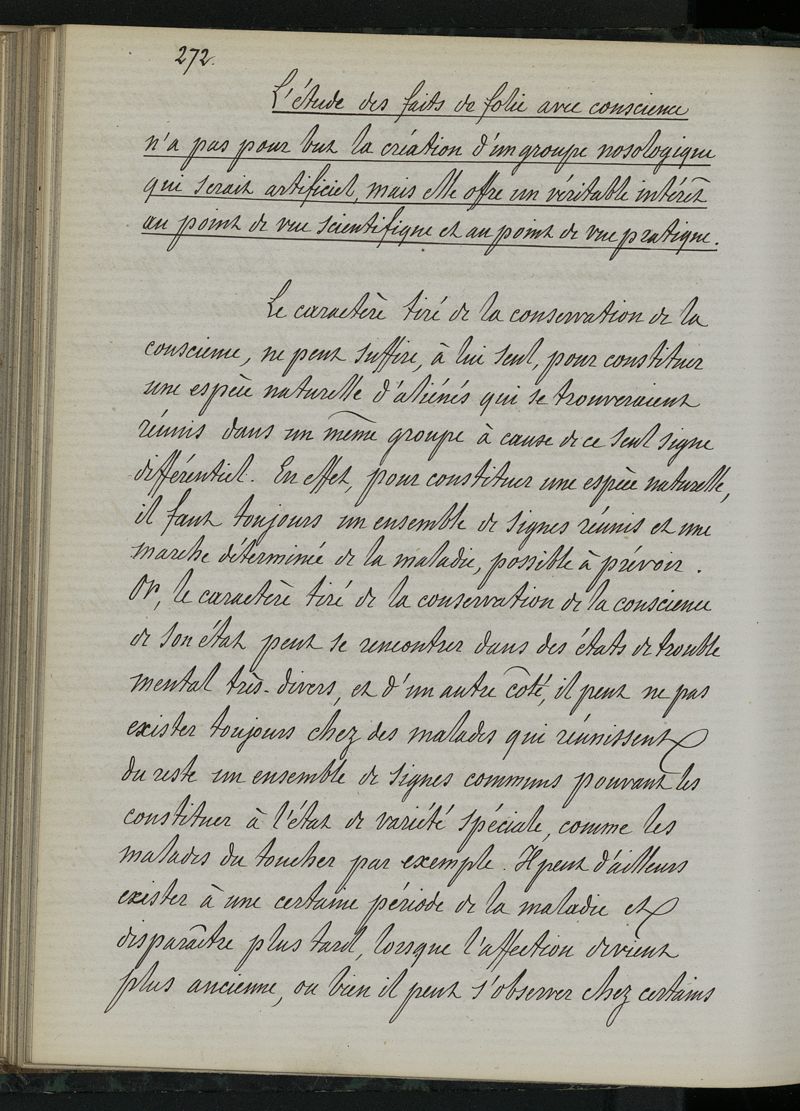 272.
L'étude des faits de folie avec conscience
n'a pas pour but la création d'un groupe nosologique
qui serait artificiel, mais elle offre un véritable intérêt
au point de vue scientifique et au point de vue pratique.
Le caractère tiré de la conservation de la
conscience, ne peut suffire, à lui seul, pour constituer
une espèce naturelle d'aliénés qui se trouveraient
réunis dans un même groupe à cause de ce seul signe
différentiel. En effet, pour constituer une espèce naturelle,
il faut toujours un ensemble de signes réunis et une
marche déterminée de la maladie, possible à prévoir.
Or, le caractère tiré de la conservation de la conscience
de son état peut se rencontrer dans des états de trouble
mental très-divers, et d'un autre côté, il peut ne pas
exister toujours chez des malades qui réunissent
du reste un ensemble de signes communs pouvant les
constituer à l'état de variété spéciale, comme les
malades du toucher par exemple. Il peut d'ailleurs
exister à une certaine période de la maladie et
disparaître plus tard, lorsque l'affection devient
plus ancienne, ou bien il peut s'observer chez certains